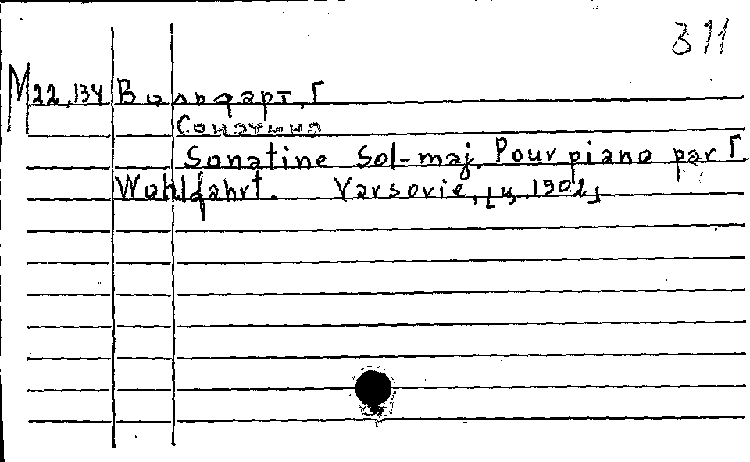 311
M22.134 Вольфарт, Г
Сонатина
Sonatine Sol-maj. Pour piano par Г.
Wohlfahrt. Varsovie, [ц. 1902]